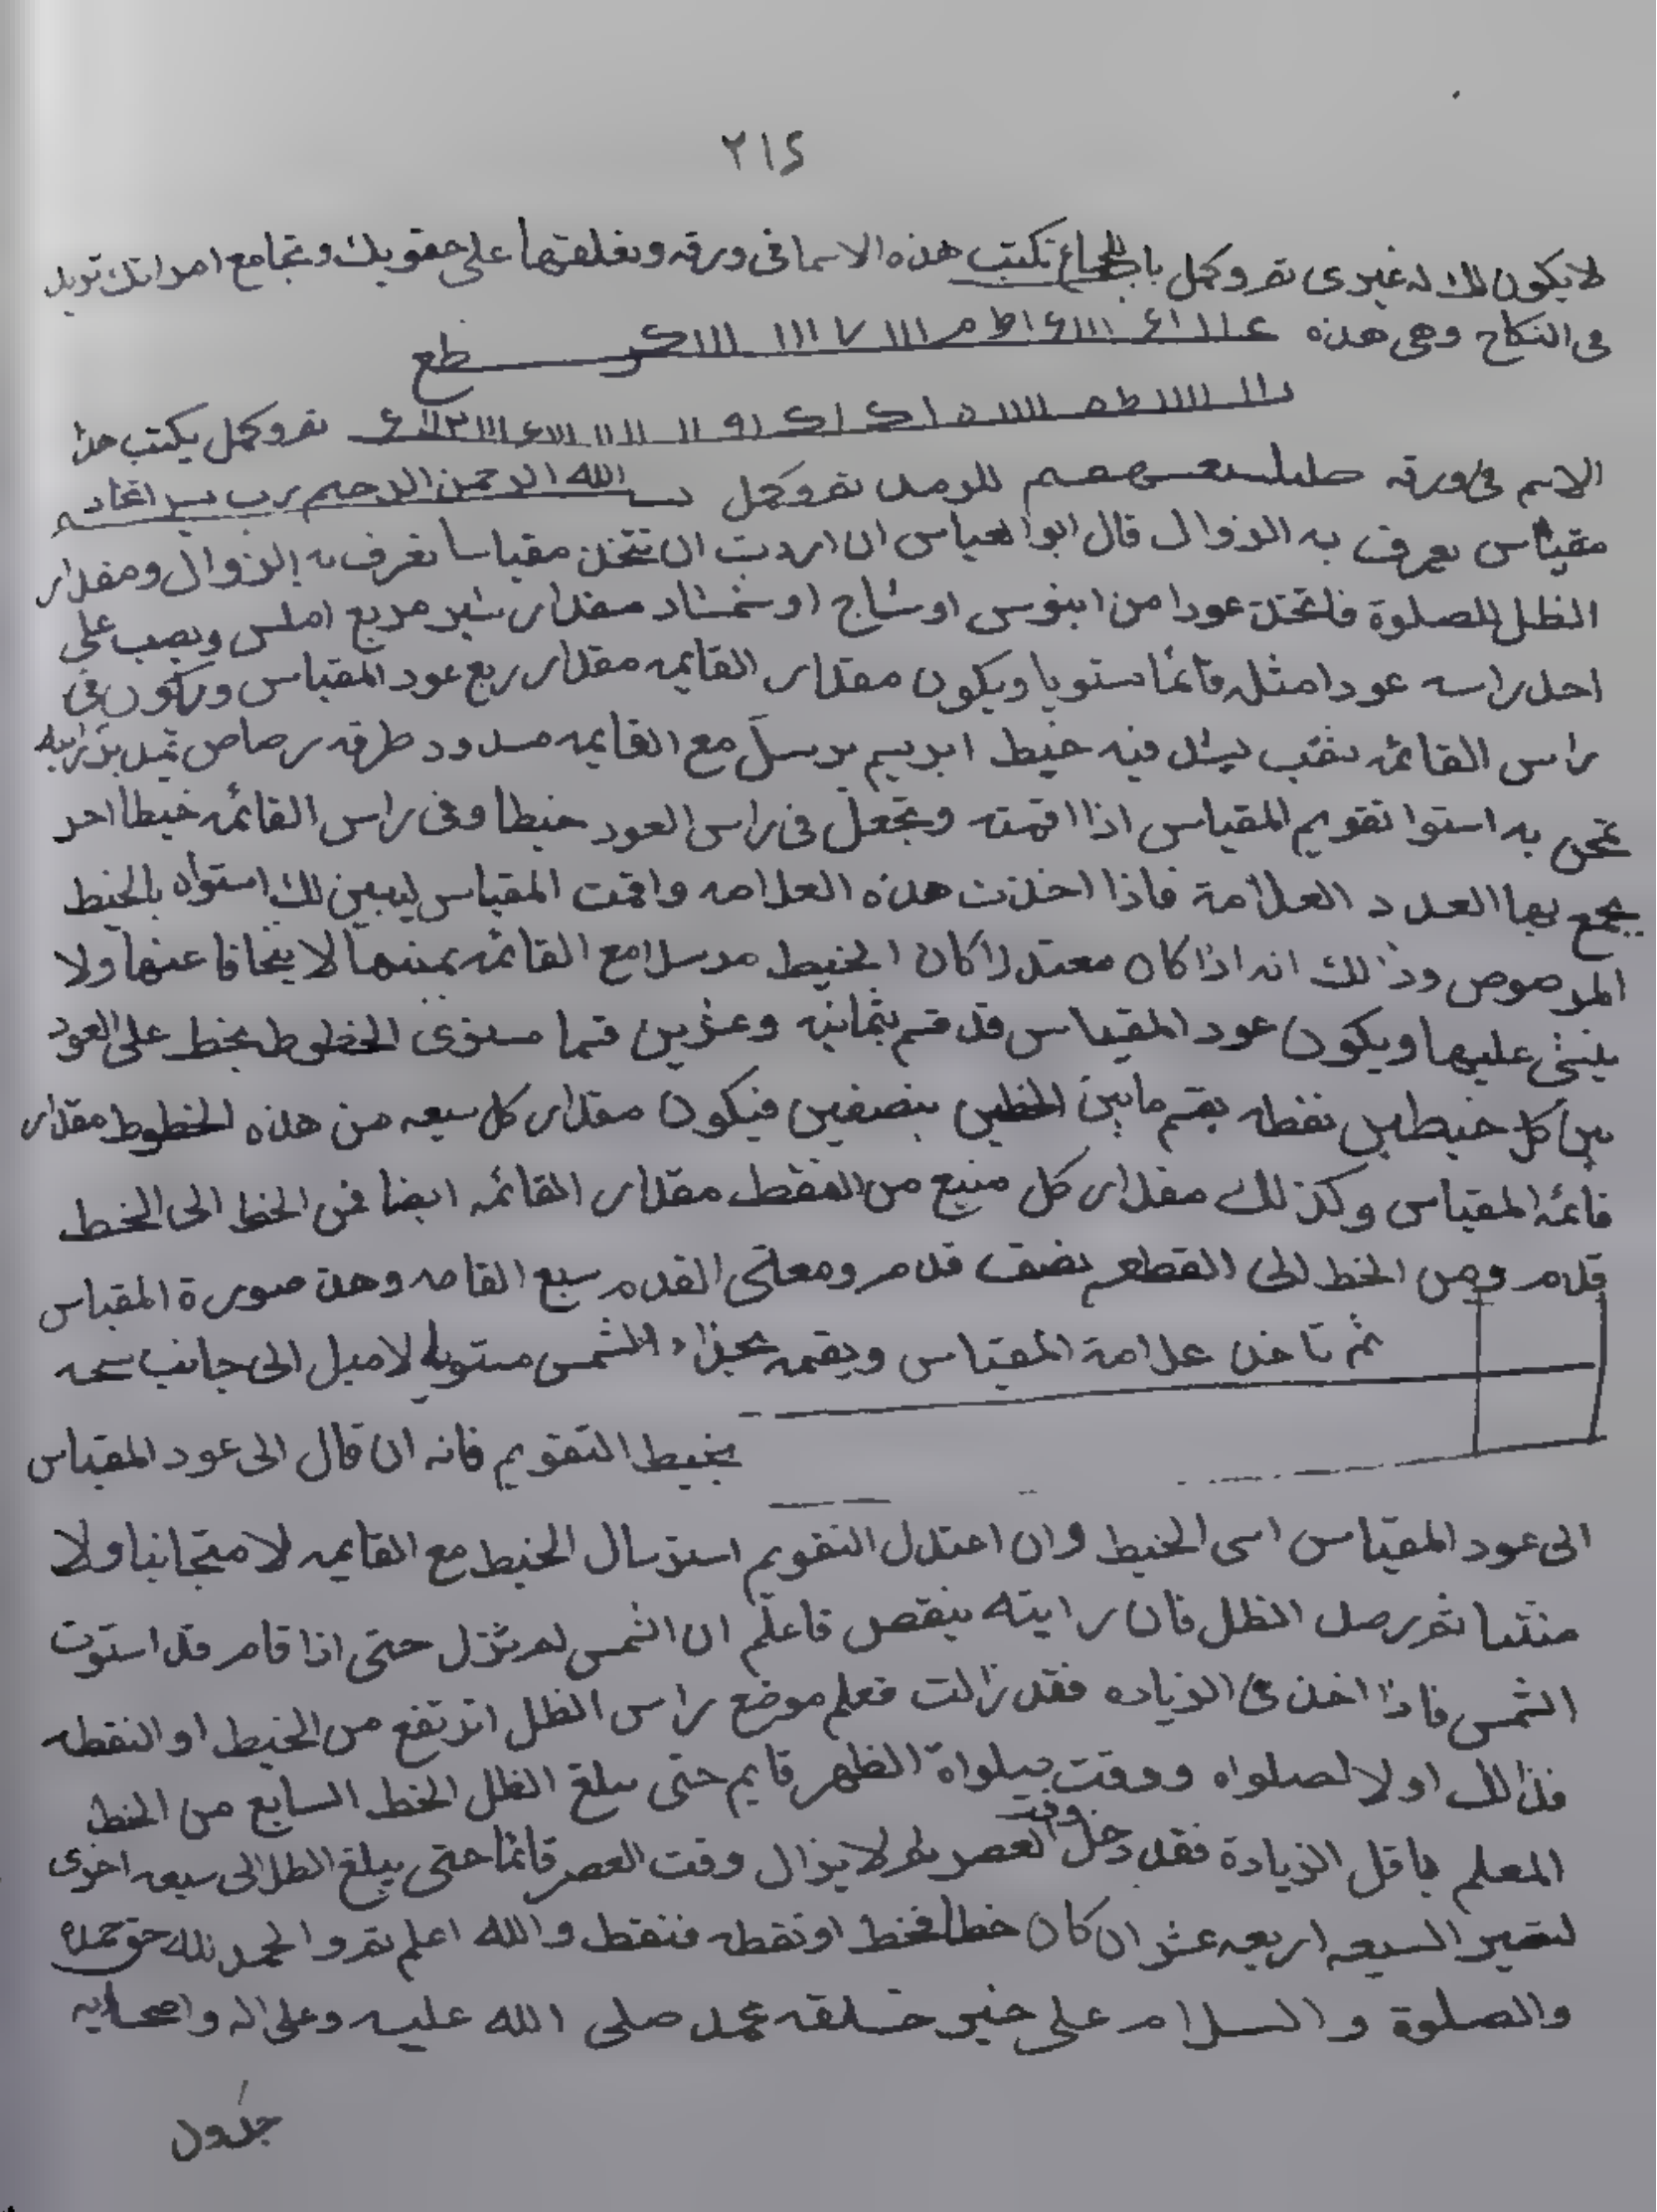 ٢١٤
لا يكون لك له غيرى تم وكمل باب الجماع تكتب هذه الاسما فى ورقه وتعلقها على حقويك وتجامع امراتك تريد
فى النكاح وهى هذه
تم وكمل يكتب هذا
الاسم فى ورقه للرمد تم وكمل بسم الله الرحمن الرحيم رب يسر
مقياس يعرف به الزوال قال ابو العباس ان اردت ان تتخذ مقياسا تعرف به الزوال ومقدار
الظل للصلوة فاتخذ عودا من ابنوس او شاج او شمشاد مقدار شبر مربع املس ونصب على
احد راسه عودا مثله قائما مستويا ويكون مقدار القايمه مقدار ربع عود المقياس ويكون فى
راس القائمه ثقب يشد فيه خيط ابريسم يرسل مع القايمه مسدود طرفه برصاص
به استوا تقويم المقياس اذا اقمته وتجعل فى راس العود خيطا وفى راس القائمه خيطا اخر
يجمع بها العدد العلامة فاذا اخذت هذه العلامه واقمت المقياس ليبين لك استواه بالخيط
المرصوص وذالك انه اذا كان معتدلا كان الخيط مرسلا مع القائمه لا يتجافا عنها ولا
ينثنى عليها ويكون عود المقياس قد قسم بثمانيه وعشرين قسما مستوى الخطوط يخط على العود
بين كل خيطين نقطه يقسم ما بين الخطين بنصفين فيكون مقدار كل سبعه من هذه الخطوط مقدار
قائمة المقياس وكذلك مقدار كل من النقط مقدار القائمه ايضا فمن الخط الى الخط
قدم ومن الخط الى القطع نصف قدم ومعلى القدم سبع القامه وهذ صورة المقياس
ثم تاخذ علامة المقياس ويقمه بحذاء الشمس مستويا لا ميل الى جانب
بخيط التقويم فانه ان قال الى عود المقياس
الى عود المقياس الخيط وان اعتدل التقويم استرسال الخيط مع القايمه لا متجانبا ولا
منثنيا ثم رصد الظل فان رايته ينقص فاعلم ان الشمس لم تزل حتى اذا قام قد استوت
الشمس فاذا اخذ فى الزياده فقد زالت فعلم موضع راس الظل ارتفع من الخيط او النقطه
فذالك اولا لصلواه ووقت صلواة الظهر قايم حتى يبلغ الظل الخط السابع من الخط
المعلم باقل الزيادة فقد دخل وقت العصر ثم لا يزال وقت العصر قائما حتى يبلغ الظل الى سبعه اخرى
لتصير السبعه اربعه عشر ان كان خطا فخط او نقطه فنقط والله اعلم تم والحمد لله حق حمده
والصلوة والسلام على خير خلقه محمد صلى الله عليه وعلى اله واصحابه
جدول